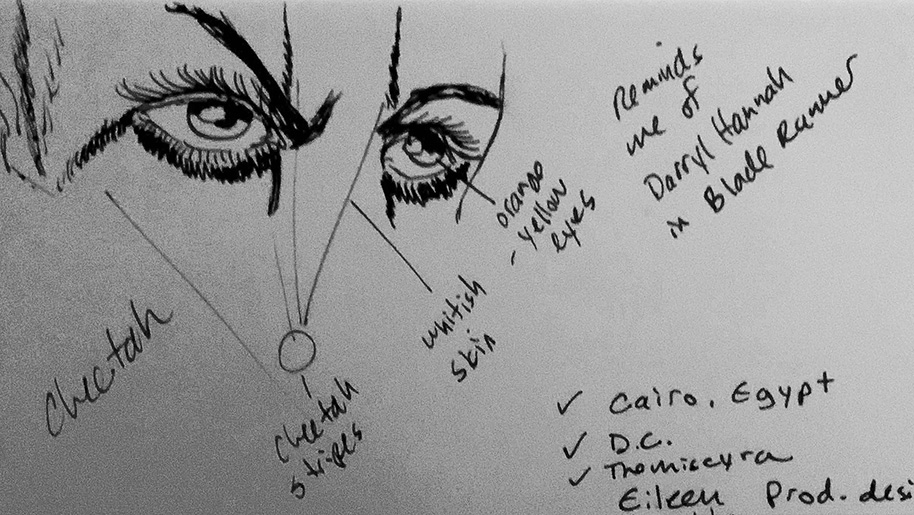 Reminds
me of
Darryl Hannah
in Blade Runner
orange
- yellow
eyes
whitish
skin
Cheetah
Cheetah
stripes
✓ Cairo, Egypt
✓ D.C.
✓ Themiscyra
Eileen Prod. desi